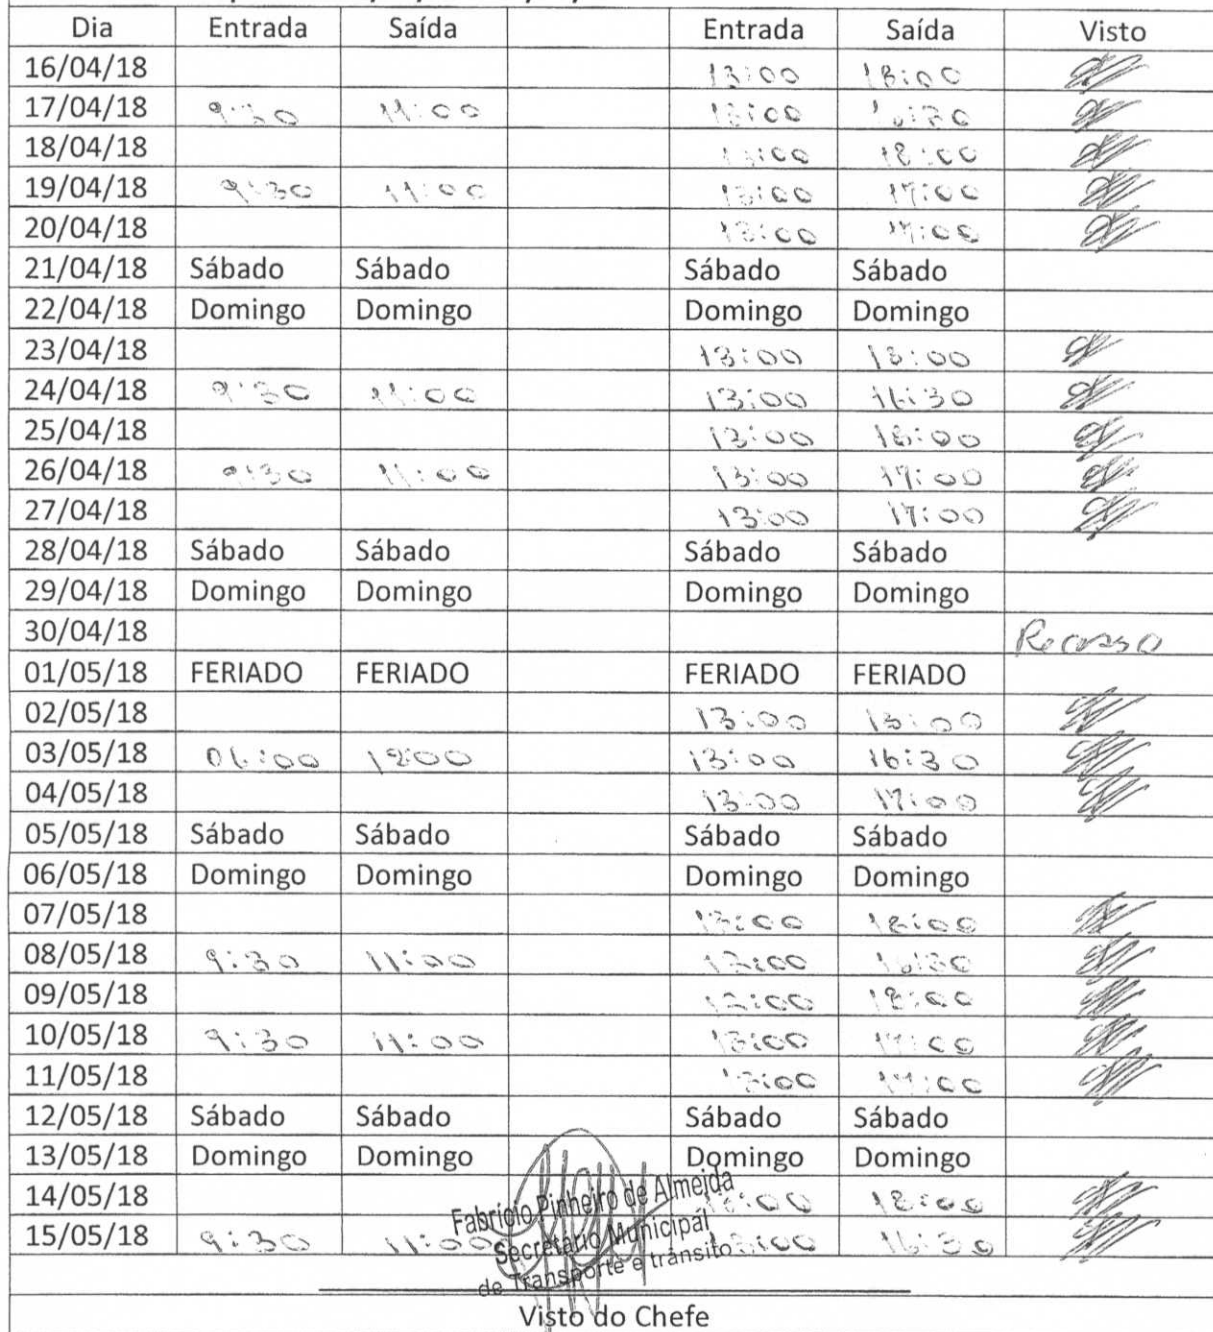 Dia Entrada Saída Entrada Saída Visto
16/04/18 13:00 18:00
17/04/18 9:30 11:00 13:00 16:30
18/04/18 13:00 18:00
19/04/18 9:30 11:00 13:00 17:00
20/04/18 13:00 17:00
21/04/18 Sábado Sábado Sábado Sábado
22/04/18 Domingo Domingo Domingo Domingo
23/04/18 13:00 18:00
24/04/18 9:30 11:00 13:00 16:30
25/04/18 13:00 18:00
26/04/18 9:30 11:00 13:00 17:00
27/04/18 13:00 17:00
28/04/18 Sábado Sábado Sábado Sábado
29/04/18 Domingo Domingo Domingo Domingo
30/04/18
01/05/18 FERIADO FERIADO FERIADO FERIADO
02/05/18 13:00 18:00
03/05/18 06:00 12:00 13:00 16:30
04/05/18 13:00 17:00
05/05/18 Sábado Sábado Sábado Sábado
06/05/18 Domingo Domingo Domingo Domingo
07/05/18 13:00 18:00
08/05/18 9:30 11:00 13:00 16:30
09/05/18 13:00 18:00
10/05/18 9:30 11:00 13:00 17:00
11/05/18 13:00 17:00
12/05/18 Sábado Sábado Sábado Sábado
13/05/18 Domingo Domingo Domingo Domingo
14/05/18 13:00 18:00
15/05/18 9:30 11:00 13:00 16:30
Fabrício Pinheiro de Almeida
Secretário Municipal
de Transporte e trânsito
Visto do Chefe